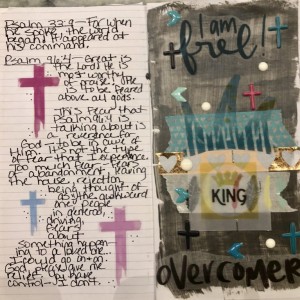 Psalm 33:9 - For when
he spoke, the world
began! It appeared at
his command.
Psalm 96:4 - Great is
the Lord! He is
most worthy
of praise! He
is to be feared
above all gods.
This fear that
Psalm 96:4 is
talking about is
a reverence for
God - to be in awe of
Him. It's not the type
of fear that I experience.
Too much fear - fears
of abandonment, leaving
the house, rejection,
being thought of
as the awkward
people
in general,
driving,
fears
about
something happen-
ing to a loved one.
I could go on & on.
God, please give me
control - I don't...
I am
free!
KING
Overcomer